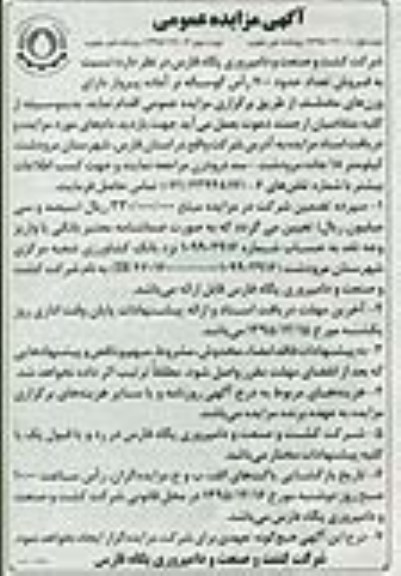 آگهی مزایده عمومی
شرکت کشت و صنعت و دامپروری پگاه فارس در نظر دارد نسبت
به فروش تعداد حدود رأس گوساله نر آماده پروار دارای
وزن‌های مختلف از طریق برگزاری مزایده عمومی اقدام نماید. بدینوسیله از
کلیه متقاضیان ارجمند دعوت بعمل می‌آید جهت بازدید دامهای مورد مزایده و
دریافت اسناد مزایده به آدرس شرکت واقع در استان فارس، شهرستان مرودشت،
کیلومتر ۱۵ جاده مرودشت - سد درودزن مراجعه نمایند و جهت کسب اطلاعات
بیشتر با شماره تلفن‌های تماس حاصل فرمایند.
۱- سپرده تضمین شرکت در مزایده مبلغ ریال (سیصد و سی
میلیون ریال) تعیین می گردد که به صورت ضمانتنامه معتبر بانکی یا واریز
وجه نقد به حساب شماره نزد بانک کشاورزی شعبه مرکزی
شهرستان مرودشت به نام شرکت کشت
و صنعت و دامپروری پگاه فارس قابل ارائه می‌باشد.
۲- آخرین مهلت دریافت اسناد و ارائه پیشنهادات پایان وقت اداری روز
یکشنبه مورخ ۱۳۹۵/۱۲/۱۵ می‌باشد.
۳- به پیشنهادات فاقد امضاء، مخدوش، مشروط، مبهم و ناقص و پیشنهادهایی
که بعد از انقضای مهلت مقرر واصل شود، مطلقاً ترتیب اثر داده نخواهد شد.
۴- هزینه‌های مربوط به درج آگهی روزنامه و یا سایر هزینه‌های برگزاری
مزایده به عهده برنده مزایده می‌باشد.
۵- شرکت کشت و صنعت و دامپروری پگاه فارس در رد و یا قبول یک یا
کلیه پیشنهادات مختار می‌باشد.
۶- تاریخ بازگشایی پاکت‌های الف، ب و ج مزایده‌گران، رأس ساعت
صبح روز دوشنبه مورخ ۱۳۹۵/۱۲/۱۶ در محل قانونی شرکت کشت و صنعت
و دامپروری پگاه فارس می‌باشد.
۷- درج این آگهی هیچگونه تعهدی برای شرکت مزایده‌گزار ایجاد نخواهد نمود.
شرکت کشت و صنعت و دامپروری پگاه فارس